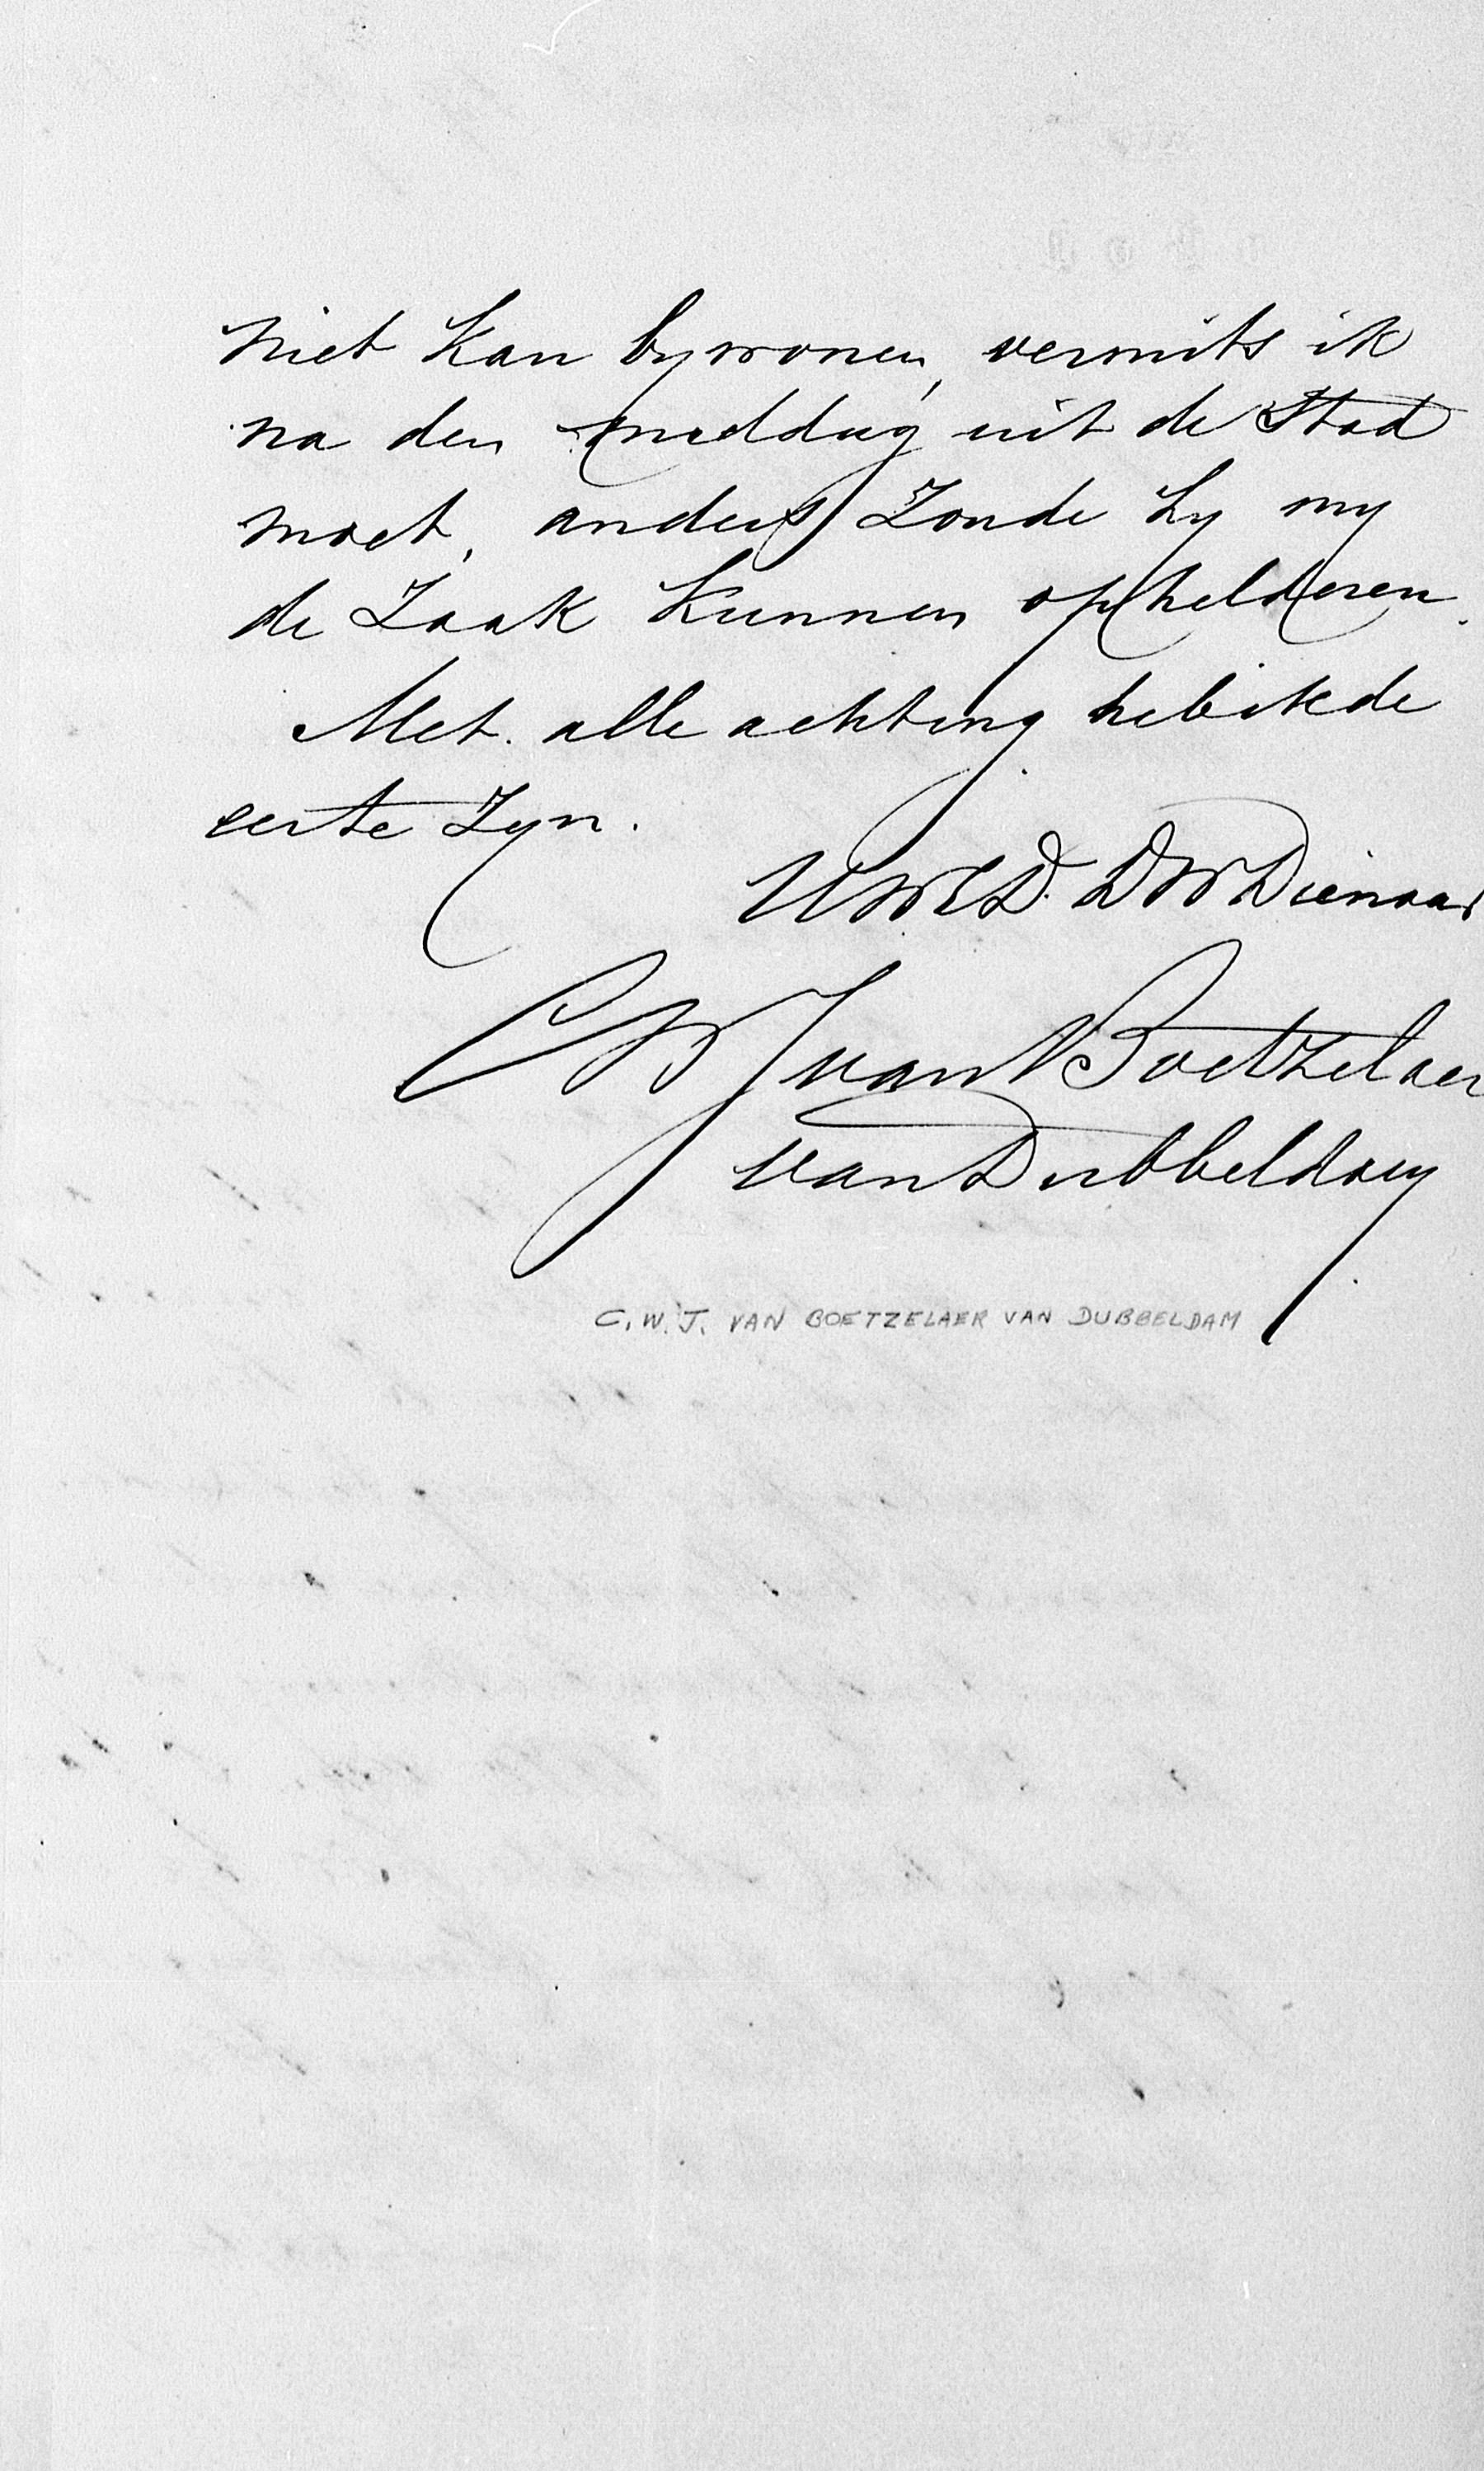 niet kan bywonen, vermits ik
na den middag uit de Stad
moet, anders zoude hy my
de Zaak kunnen ophelderen.
Met alle achting heb ik de
eer te Zyn.
UWED. DW Dienaar
CWJ van Boetzelaer
van Dubbeldam
C.W.J. VAN BOETZELAER VAN DUBBELDAM